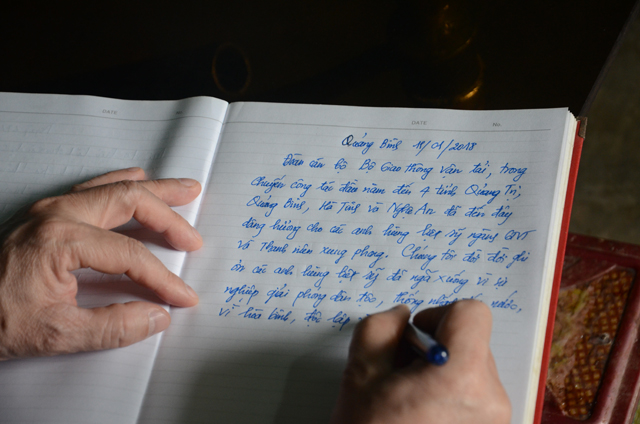 DATE
DATE No.
Quảng Bình 11/01/2018
Đoàn cán bộ Bộ Giao thông vận tải, trong
chuyến công tác đầu năm đến 4 tỉnh Quảng Trị,
Quảng Bình, Hà Tĩnh và Nghệ An đã đến đây
dâng hương cho các anh hùng liệt sỹ ngành GTVT
và Thanh niên xung phong. Chúng tôi đời đời ghi
ơn các anh hùng liệt sỹ đã ngã xuống vì sự
nghiệp giải phóng dân tộc, thống nhất nước,
vì hòa bình, độc lập